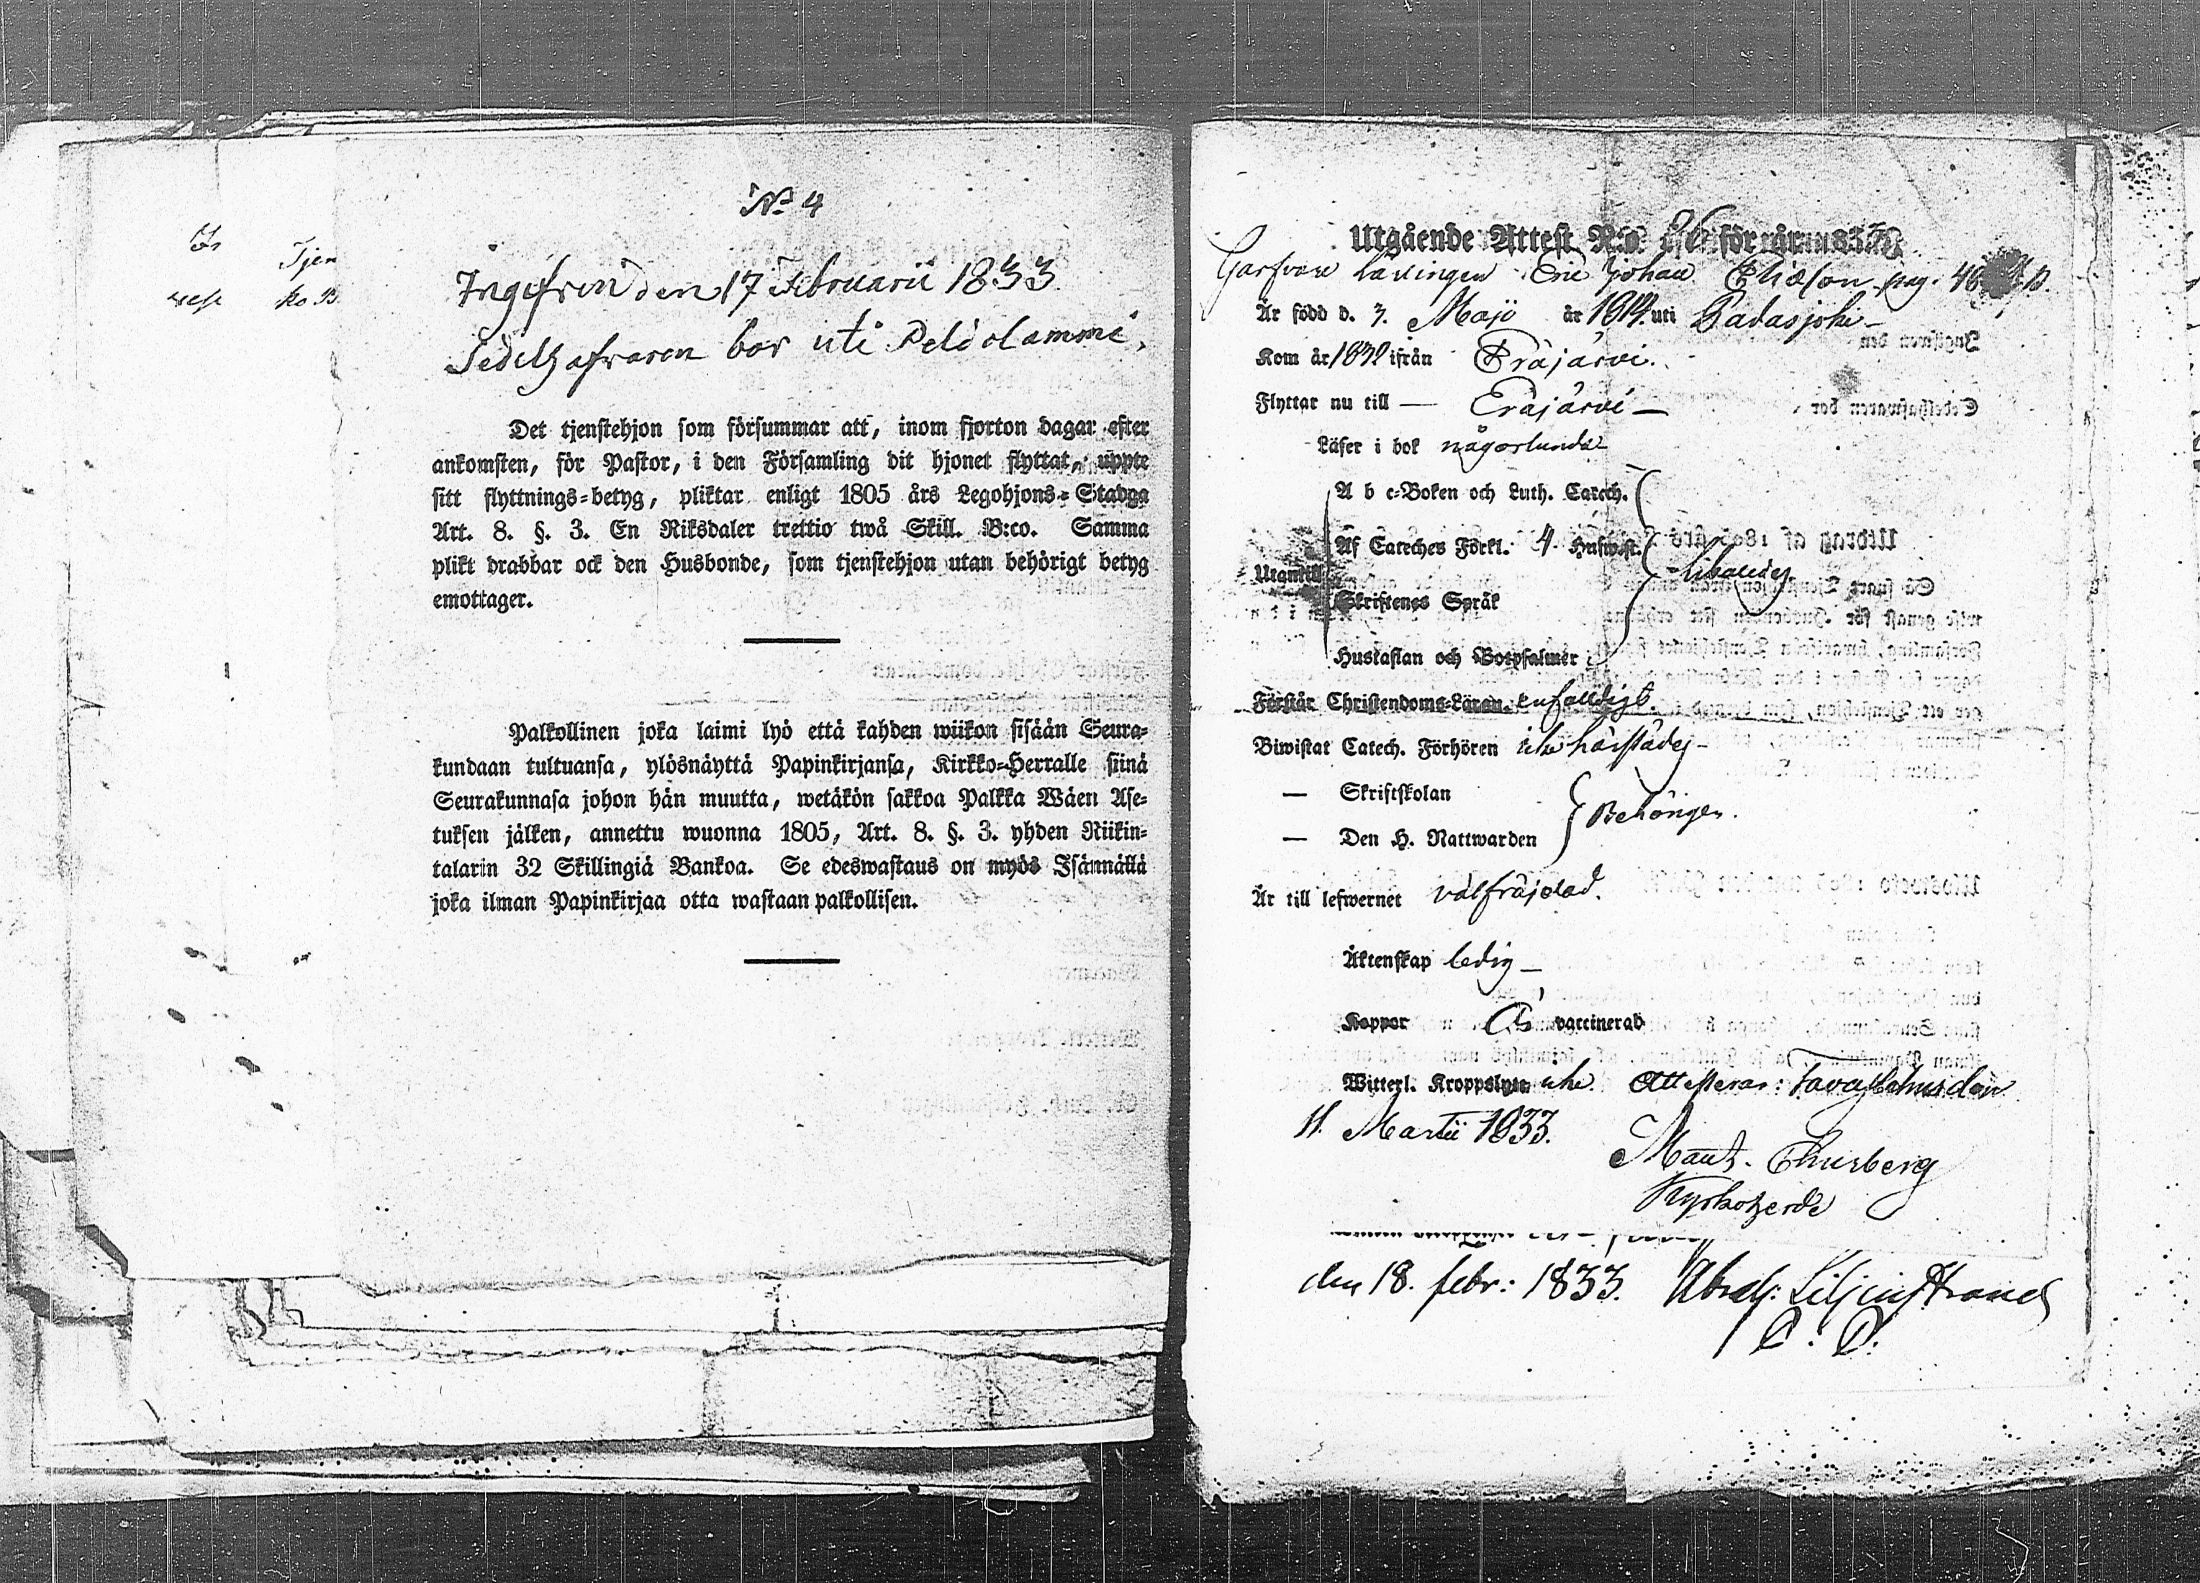 No 4
Ingifven den 17 Februarii 1833.
Sedelhafvaren bor uti
Det tjenstehjon som försummar att, inom fjorton dagar efter
ankomsten, för Pastor, i den Församling dit hjonet flyttat, uppte
sitt flyttnings=betyg, pliktar enligt 1805 års Legohjons=Stadga
Art. 8. §. 3. En Riksdaler trettio twå Skill. B:co. Samma
plikt drabbar ock den Husbonde, som tjenstehjon utan behörigt betyg
emottager.
Palkollinen joka laimi lyö että kahden wiikon sisään Seura=
kundaan tultuansa, ylösnäyttä Papinkirjansa, Kirkko=Herralle siinä
Seurakunnasa johon hän muutta, wetäkön sakkoa Palkka Wäen Ase=
tuksen jälken, annettu wuonna 1805, Art. 8. §. 3. yhden Riikin=
talarin 32 Skillingiä Bankoa. Se edeswastaus on myös Isännällä
joka ilman Papinkirjaa otta wastaan palkollisen.
Tjen
ko B
Utgående Attest N:o för
Garfvare Lärlingen Eric Johan pag. 40
Är född d. 7. Maji år 1814. uti Padasjoki
Kom år 1832 ifrån Eräjärvi.
Flyttar nu till — Eräjärvi —
Läser i bok någorlunda
A b c=Boken och Luth. Catech.
Af Cateches Förkl. 4. Hufwst.
Utantill
Skriftenes Språk
Hustaflan och Botpsalmer
Förstår Christendoms=Läran enfaldigt
Biwistat Catech. Förhören icke härstädes
— Skriftskolan
Behörigen.
— Den H. Nattwarden
Är till lefwernet välfräjdad.
Äktenskap ledig —
Koppor vaccinerad
Witterl. Kroppslyte icke. Attesterar: Tavastehus den
11. Martii 1833.
Thurberg
Kyrkoherde
den 18. febr: 1833. Liljenstrand